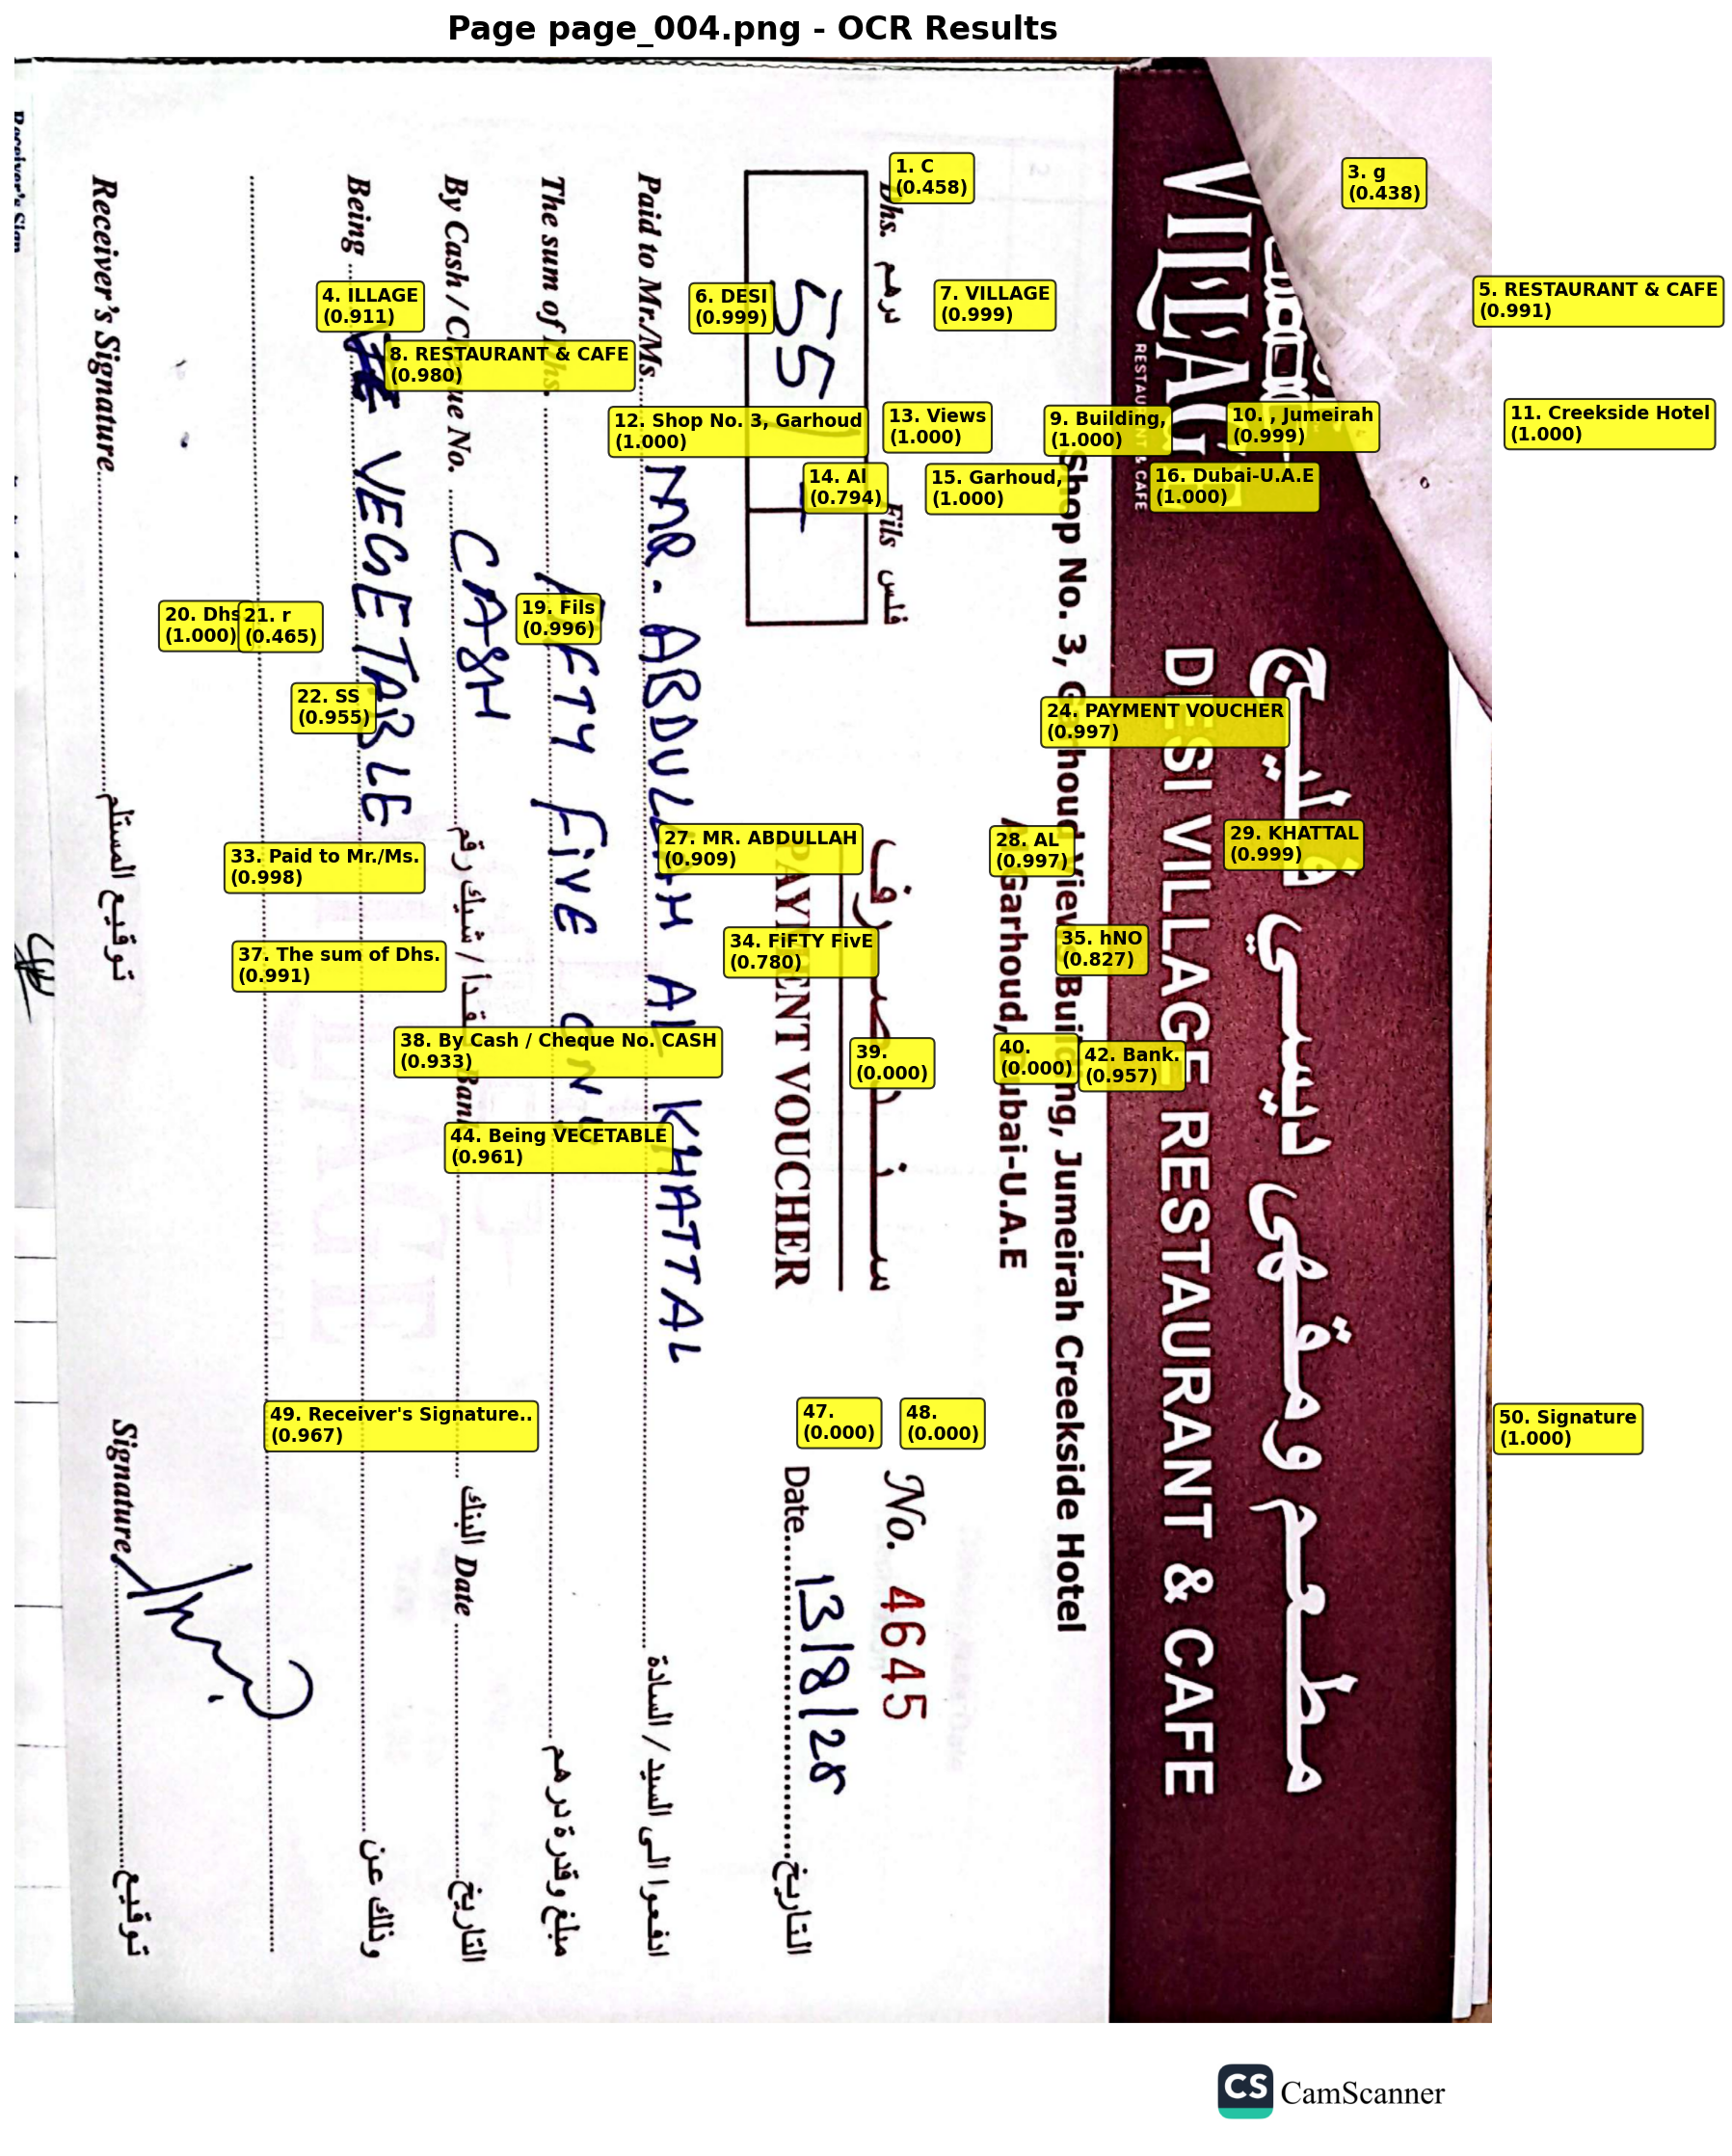 Page page_004.png - OCR Results
1. C
(0.458)
3. g
(0.438)
4. ILLAGE
(0.911)
5. RESTAURANT & CAFE
(0.991)
6. DESI
(0.999)
7. VILLAGE
(0.999)
8. RESTAURANT & CAFE
(0.980)
9. Building,
(1.000)
10. , Jumeirah
(0.999)
11. Creekside Hotel
(1.000)
12. Shop No. 3, Garhoud
(1.000)
13. Views
(1.000)
14. Al
(0.794)
15. Garhoud,
(1.000)
16. Dubai-U.A.E
(1.000)
19. Fils
(0.996)
20. Dhs
(1.000)
21. r
(0.465)
22. SS
(0.955)
24. PAYMENT VOUCHER
(0.997)
27. MR. ABDULLAH
(0.909)
28. AL
(0.997)
29. KHATTAL
(0.999)
33. Paid to Mr./Ms.
(0.998)
34. FiFTY FivE
(0.780)
35. hNO
(0.827)
37. The sum of Dhs.
(0.991)
38. By Cash / Cheque No. CASH
(0.933)
39.
(0.000)
40.
(0.000)
42. Bank.
(0.957)
44. Being VECETABLE
(0.961)
47.
(0.000)
48.
(0.000)
49. Receiver's Signature..
(0.967)
50. Signature
(1.000)
مطعم ومقهى ديسي فيليج
VILLAGE
RESTAURANT & CAFE
DESI VILLAGE RESTAURANT & CAFE
Shop No. 3, Garhoud Views Building, Jumeirah Creekside Hotel
Al Garhoud, Dubai-U.A.E
Dhs. درهم Fils فلس
سند صرف
No. 4645
55
PAYMENT VOUCHER
Date 13/8/25 التاريخ
Paid to Mr./Ms. MR. ABDULLAH AL KHATTAL ادفعوا الى السيد / السادة
The sum of Dhs. FIFTY FIVE ONLY مبلغ وقدرة درهم
By Cash / Cheque No. CASH نقداً / شيك رقم Bank البنك Date التاريخ
Being VEGETABLE وذلك عن
Receiver's Signature توقيع المستلم Signature توقيع
Receiver's Sign
CS CamScanner